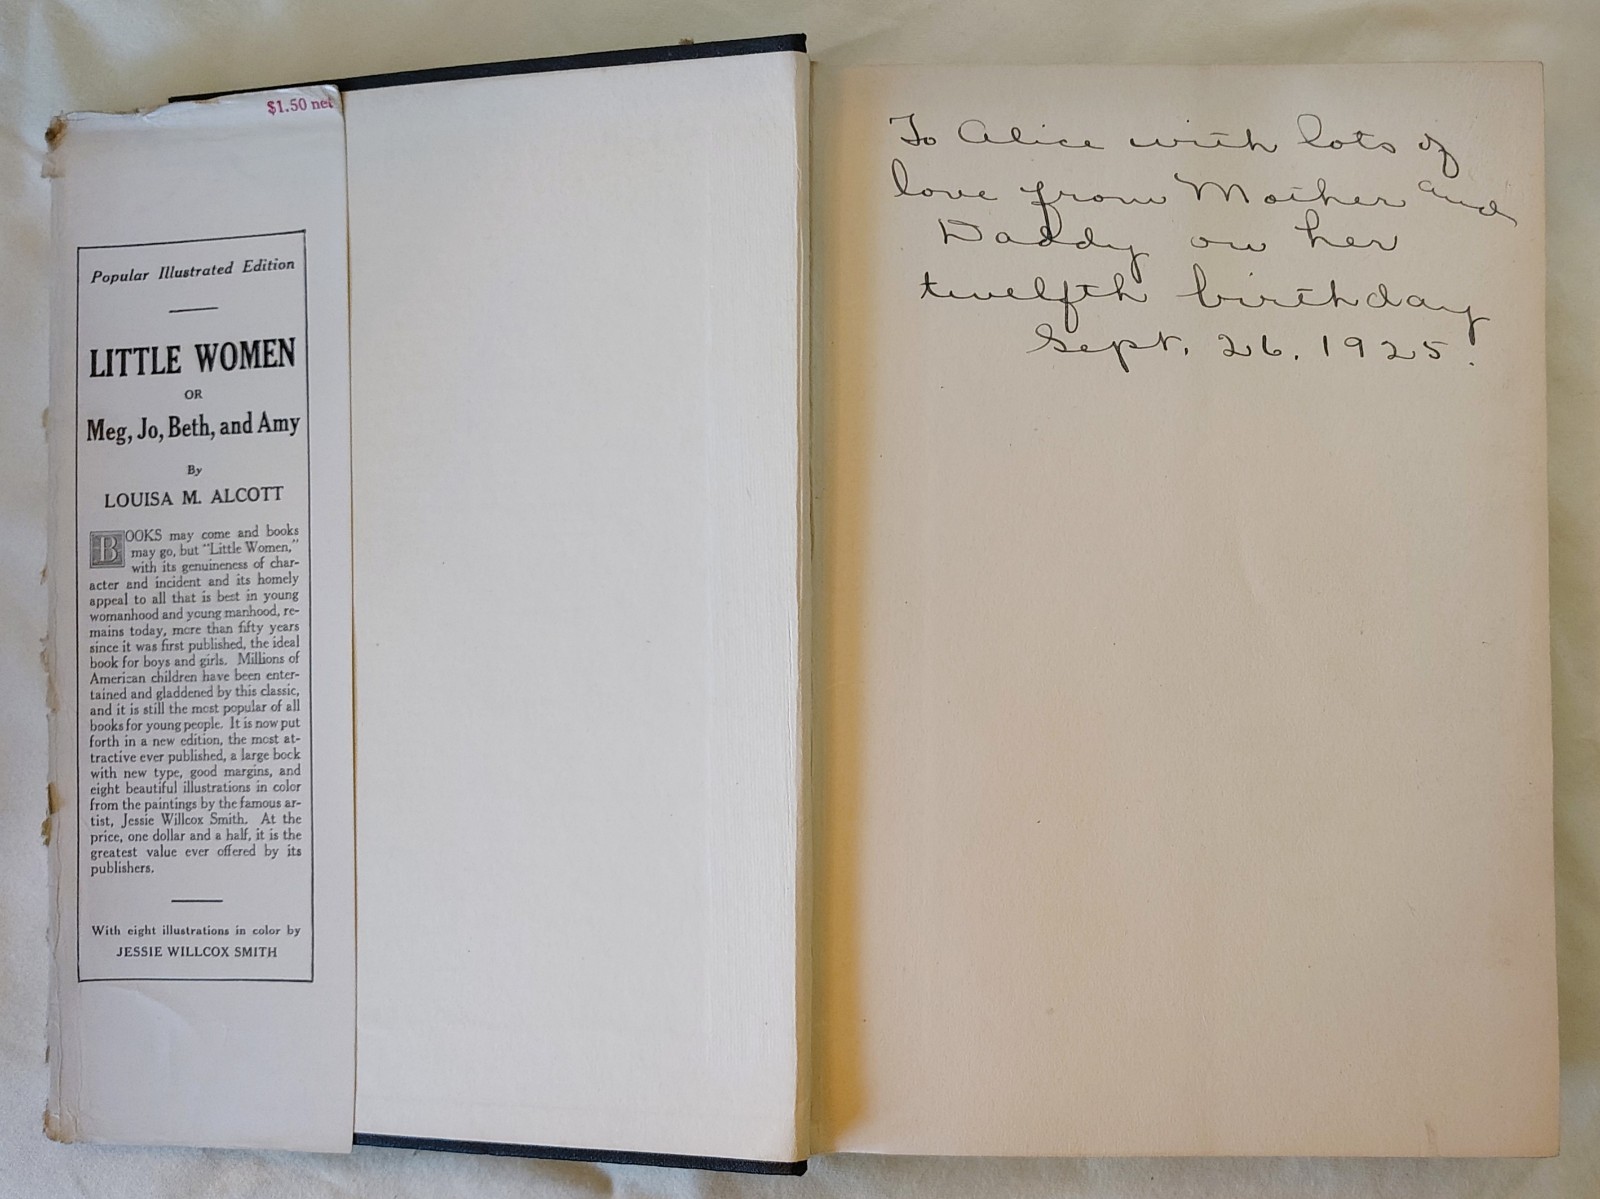 $1.50 net
Popular Illustrated Edition
LITTLE WOMEN
OR
Meg, Jo, Beth, and Amy
By
LOUISA M. ALCOTT
BOOKS may come and books
may go, but "Little Women,"
with its genuineness of char-
acter and incident and its homely
appeal to all that is best in young
womanhood and young manhood, re-
mains today, more than fifty years
since it was first published, the ideal
book for boys and girls. Millions of
American children have been enter-
tained and gladdened by this classic,
and it is still the most popular of all
books for young people. It is now put
forth in a new edition, the most at-
tractive ever published, a large book
with new type, good margins, and
eight beautiful illustrations in color
from the paintings by the famous ar-
tist, Jessie Willcox Smith. At the
price, one dollar and a half, it is the
greatest value ever offered by its
publishers.
With eight illustrations in color by
JESSIE WILLCOX SMITH
To Alice with lots of
love from Mother and
Daddy on her
twelfth birthday
Sept. 26. 1925.